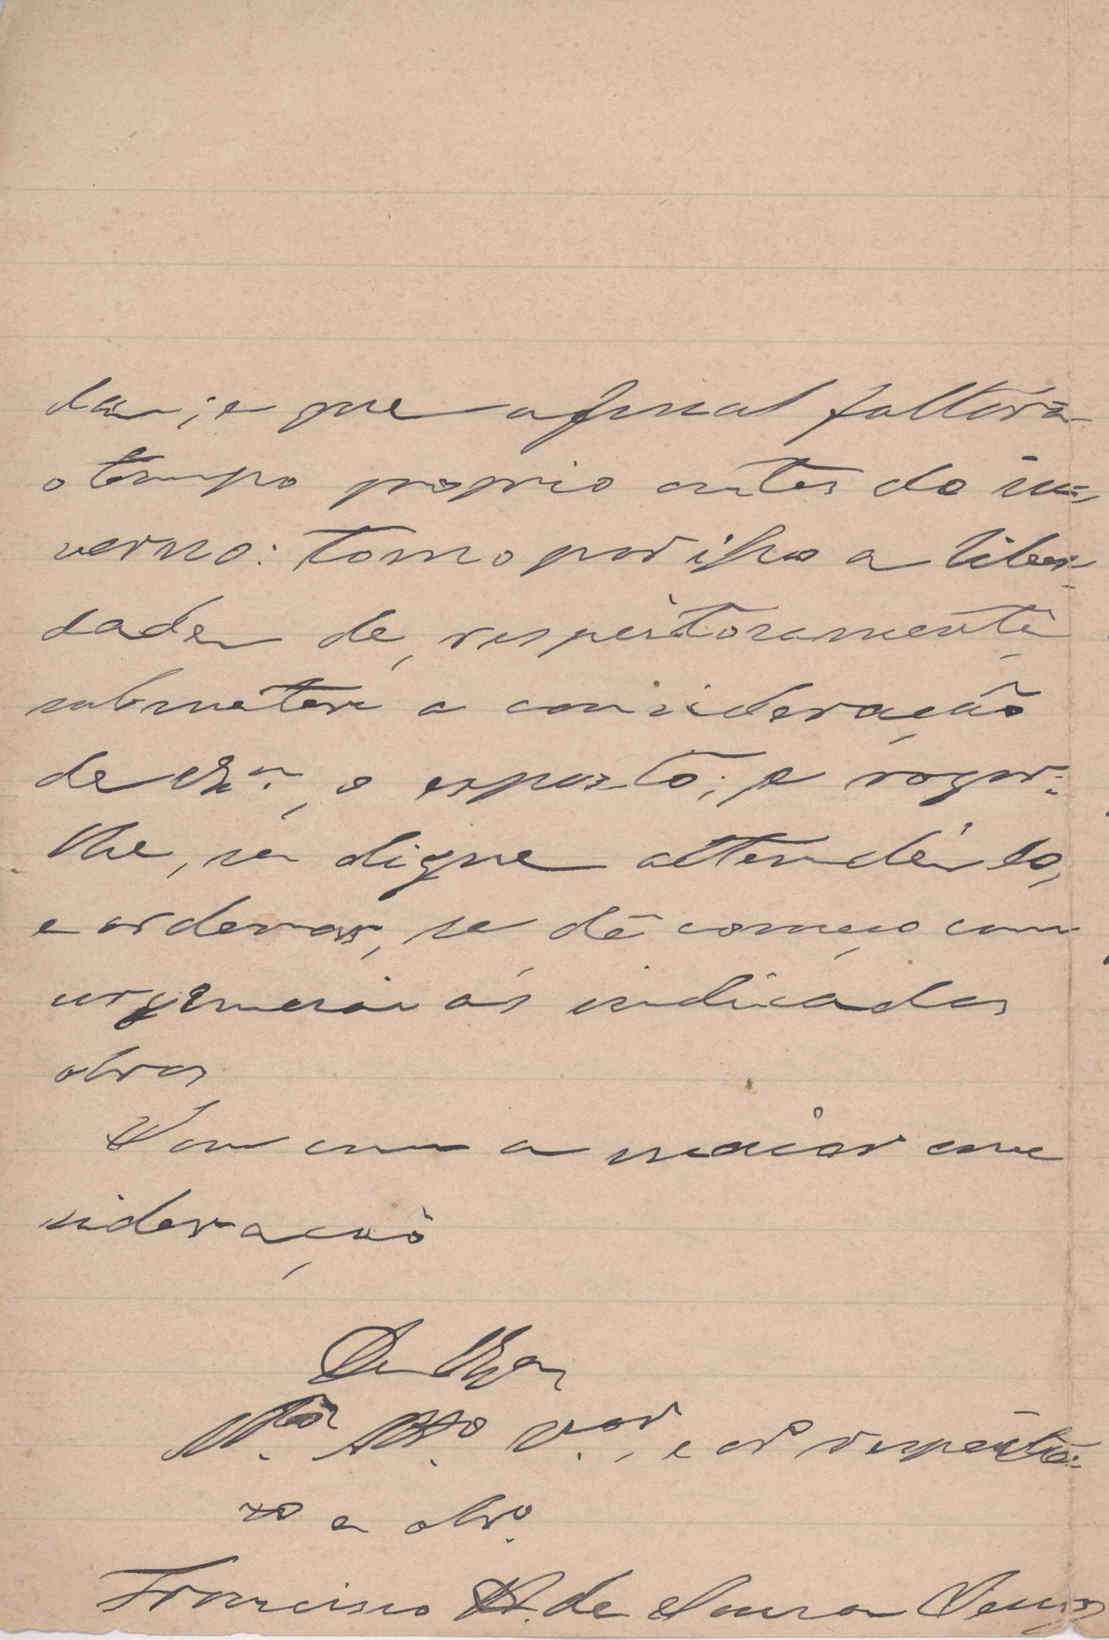 das; e que afinal faltará
o tempo proprio antes do in=
verno: tomo por isso a liber=
dade de, respeitosamente,
submeter a consideração
de VEx.ª, o esposto; e rogar=
lhe, se digne attendêl-o,
e ordenar, se dê começo com
urgencia ás indicadas
obras
Sou com a maior con
sideração
De VExa
M.to V.or, e cr.º respeito=
so e obr.º
Francisco de Souza